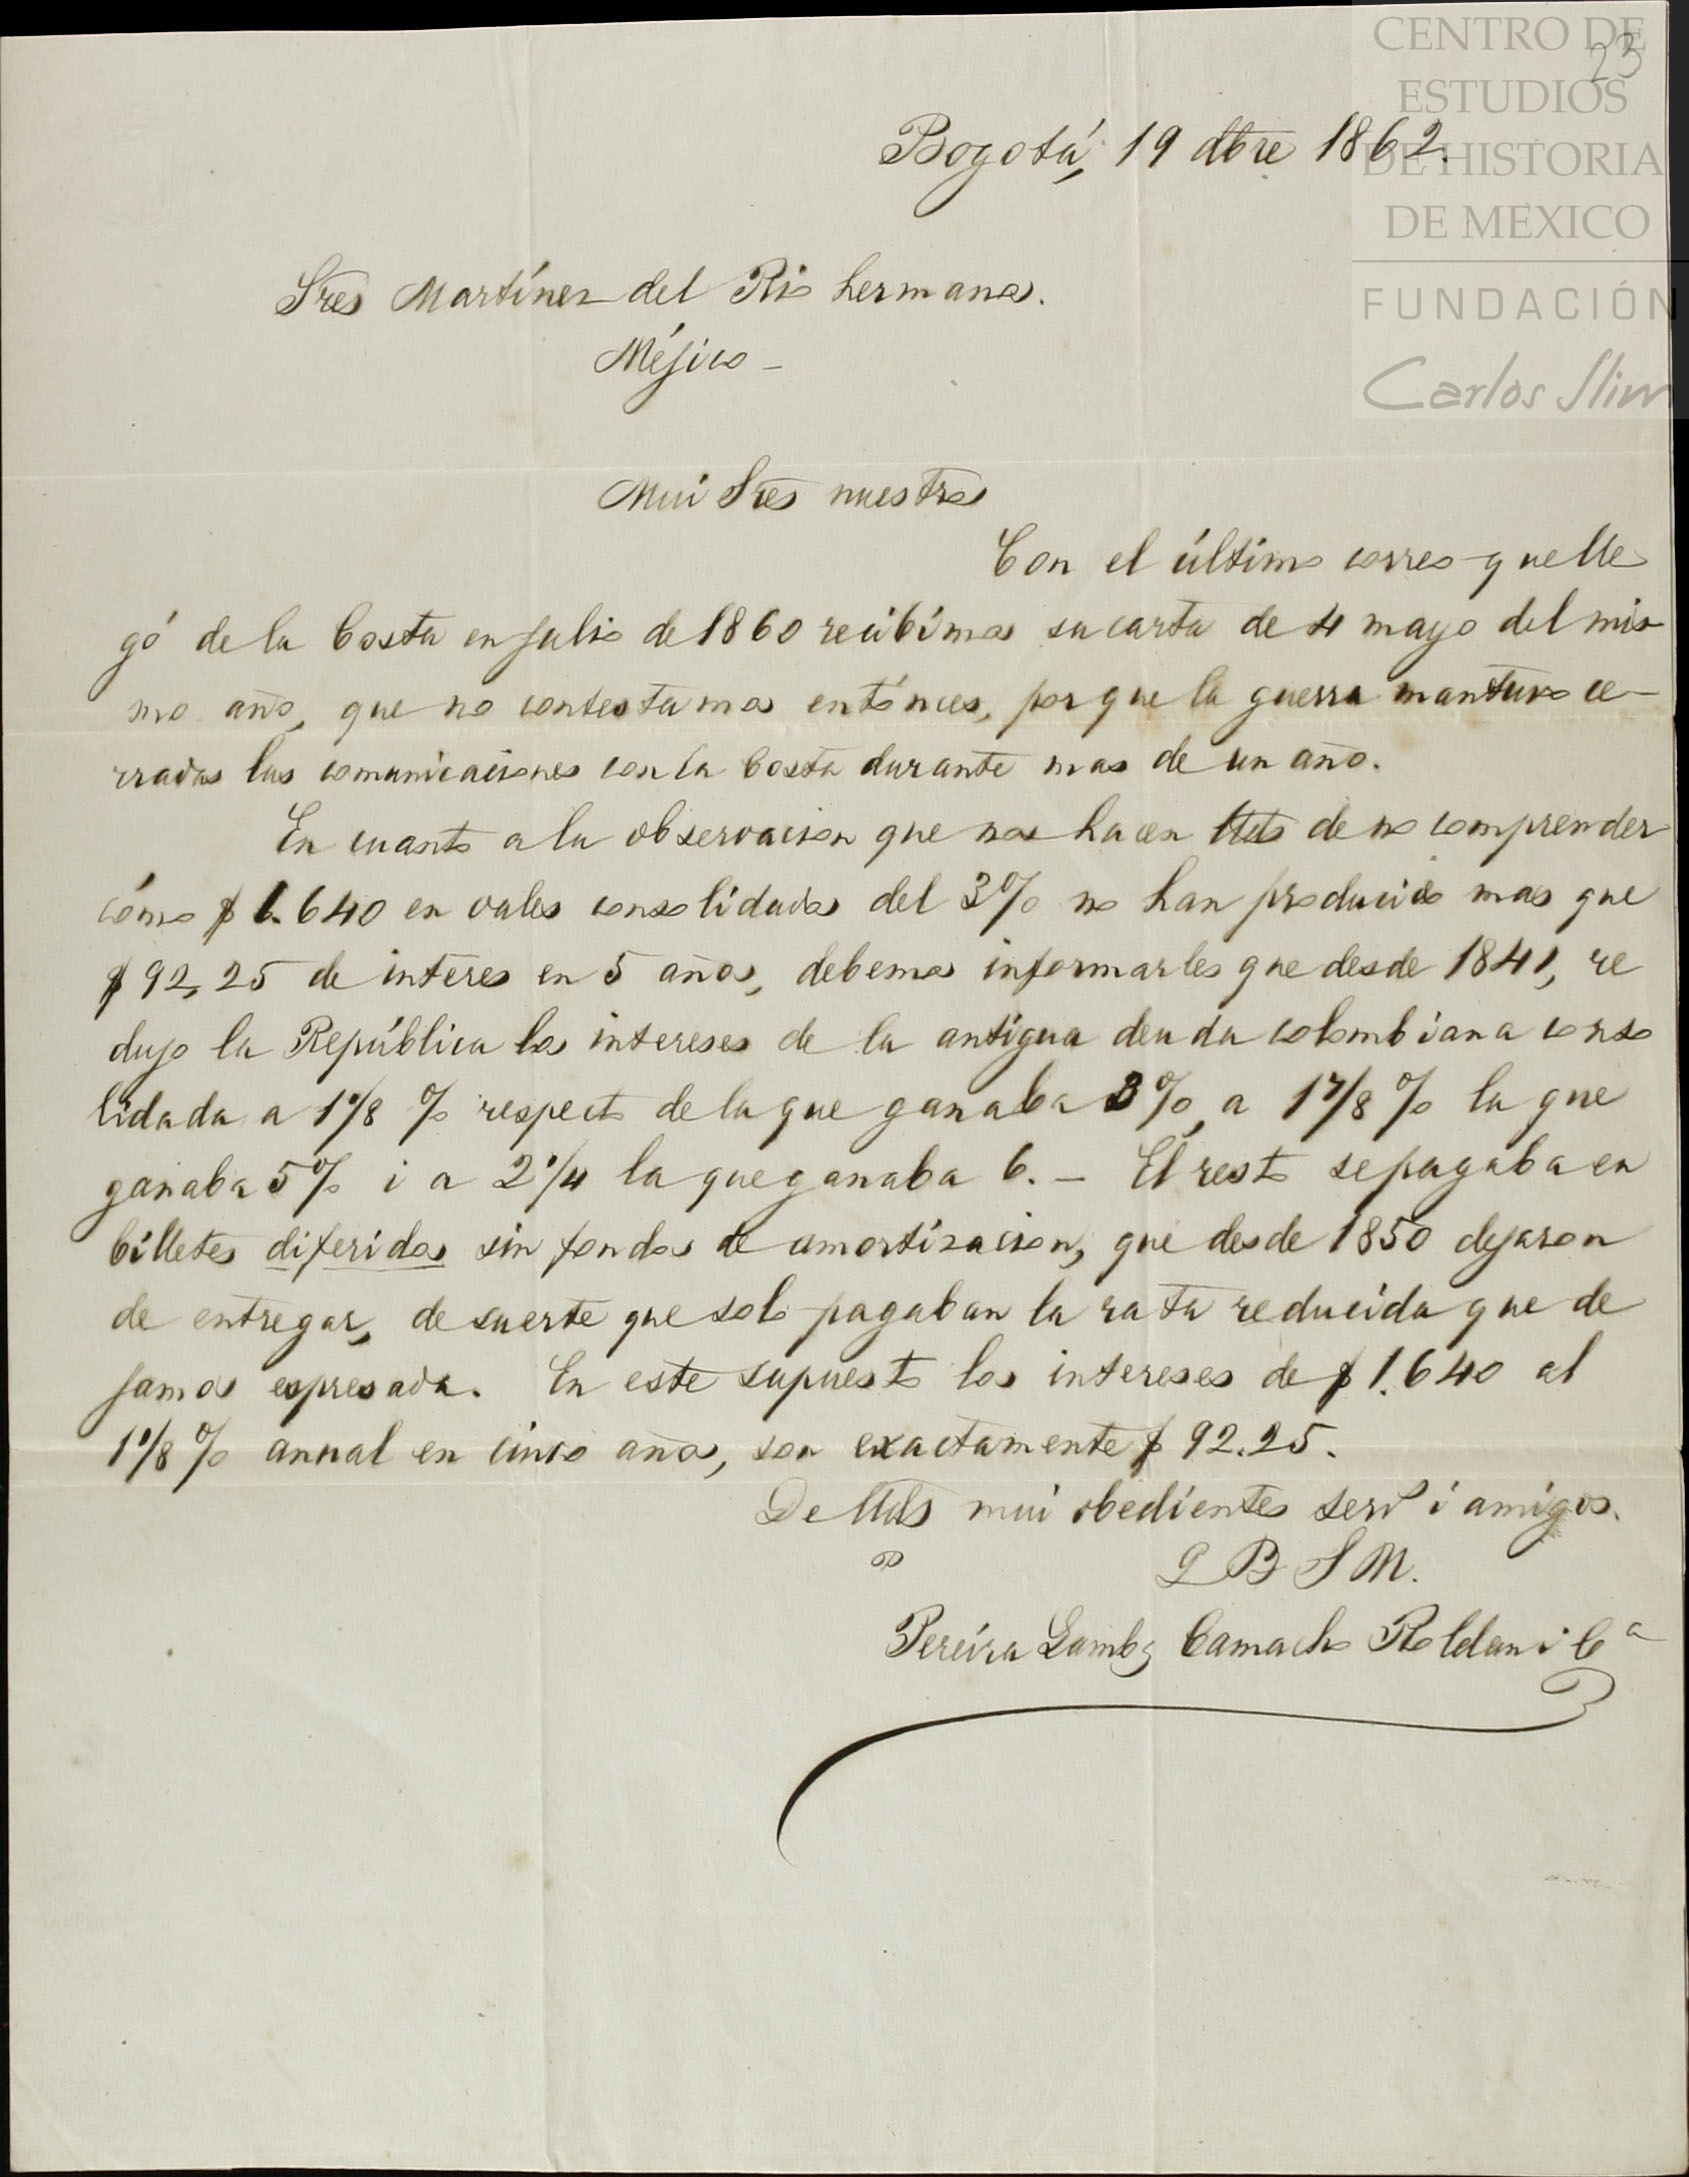 CENTRO DE
ESTUDIOS
DE HISTORIA
DE MEXICO
FUNDACIÓN
Carlos Slim
23
Bogotá, 19 dbre 1862.
Sres Martínez del Rio hermanos.
Méjico -
Mui Sres nuestros
Con el último correo que lle
gó de la Costa en julio de 1860 recibimos su carta de 4 mayo del mis-
mo año, que no contestamos entónces, porque la guerra mantuvo ce-
rradas las comunicaciones con la Costa durante mas de un año.
En cuanto a la observacion que nos hacen Uds de no comprender
cómo $ 1.640 en vales consolidados del 3% no han producido mas que
$ 92,25 de interes en 5 años, debemos informarles que desde 1841, re
dujo la República los intereses de la antigua deuda colombiana conso
lidada a 1 1/8 % respecto de la que ganaba 3%, a 1 7/8 % la que
ganaba 5% i a 2 1/4 la que ganaba 6. - El resto se pagaba en
billetes diferidos sin fondos de amortizacion, que desde 1850 dejaron
de entregar, de suerte que solo pagaban la rata reducida que de
jamos espresada. En este supuesto los intereses de $ 1.640 al
1 1/8 % annal en cinco años, son exactamente $ 92.25.
De Uds mui obedientes servs i amigos.
Q B S M.
Pereira Gamba, Camacho Roldan i Ca